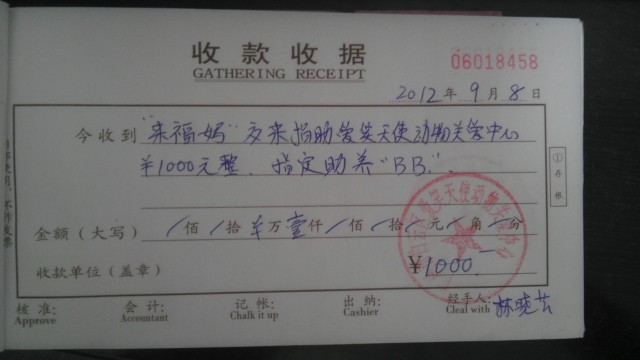 收款收据
GATHERING RECEIPT
06018458
2012年9月8日
今收到"来福妈"交来捐助爱笑天使动物关爱中心
¥1000元整.指定助养"BB."
①存根
金额（大写） / 佰 / 拾 ¥ 万 壹 仟 / 佰 / 拾 / 元 / 角 / 分
收款单位（盖章） ¥1000.—
核准: 会计: 记帐: 出纳: 经手人: 林晓芸
Approve Accountant Chalk it up Cashier Cleal with